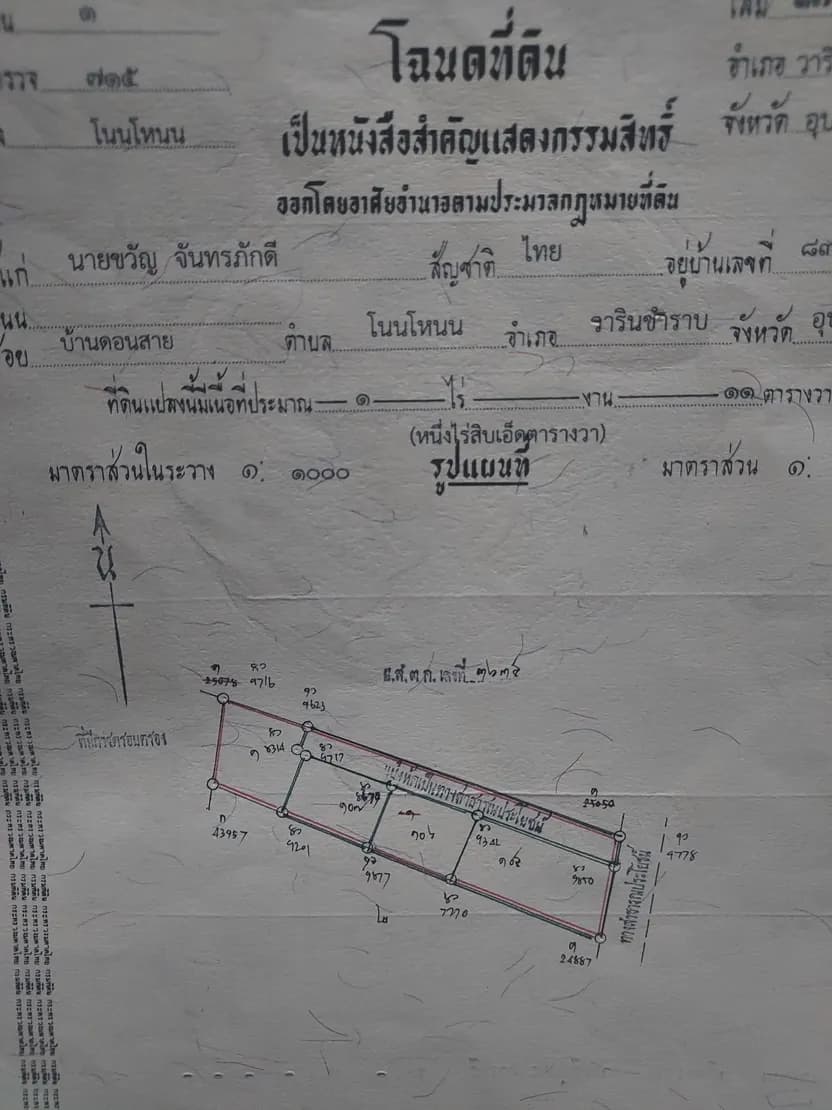 ๑
โฉนดที่ดิน
เล่ม
๗๑๕
อำเภอ วาริ
โนนโหนน
เป็นหนังสือสำคัญแสดงกรรมสิทธิ์
จังหวัด อุบ
ออกโดยอาศัยอำนาจตามประมวลกฎหมายที่ดิน
แก่ นายขวัญ จันทรภักดี สัญชาติ ไทย อยู่บ้านเลขที่ ๘๙
บ้านดอนสาย ตำบล โนนโหนน อำเภอ วารินชำราบ จังหวัด อุบ
ที่ดินแปลงนี้มีเนื้อที่ประมาณ — ๑ — ไร่ — งาน — ๑๑ ตารางวา
(หนึ่งไร่สิบเอ็ดตารางวา)
มาตราส่วนในระวาง ๑: ๑๐๐๐ รูปแผนที่ มาตราส่วน ๑:
น
น.ส.๓ ก. เลขที่
25078
9716
9623
ที่มีการครอบครอง
8314
9717
แบ่งหักเป็นทางสาธารณประโยชน์
25050
๑
๑๐๗
๑๐๖
๑๐๕
43957
9201
9677
7770
9850
9778
ทางสาธารณประโยชน์
24887